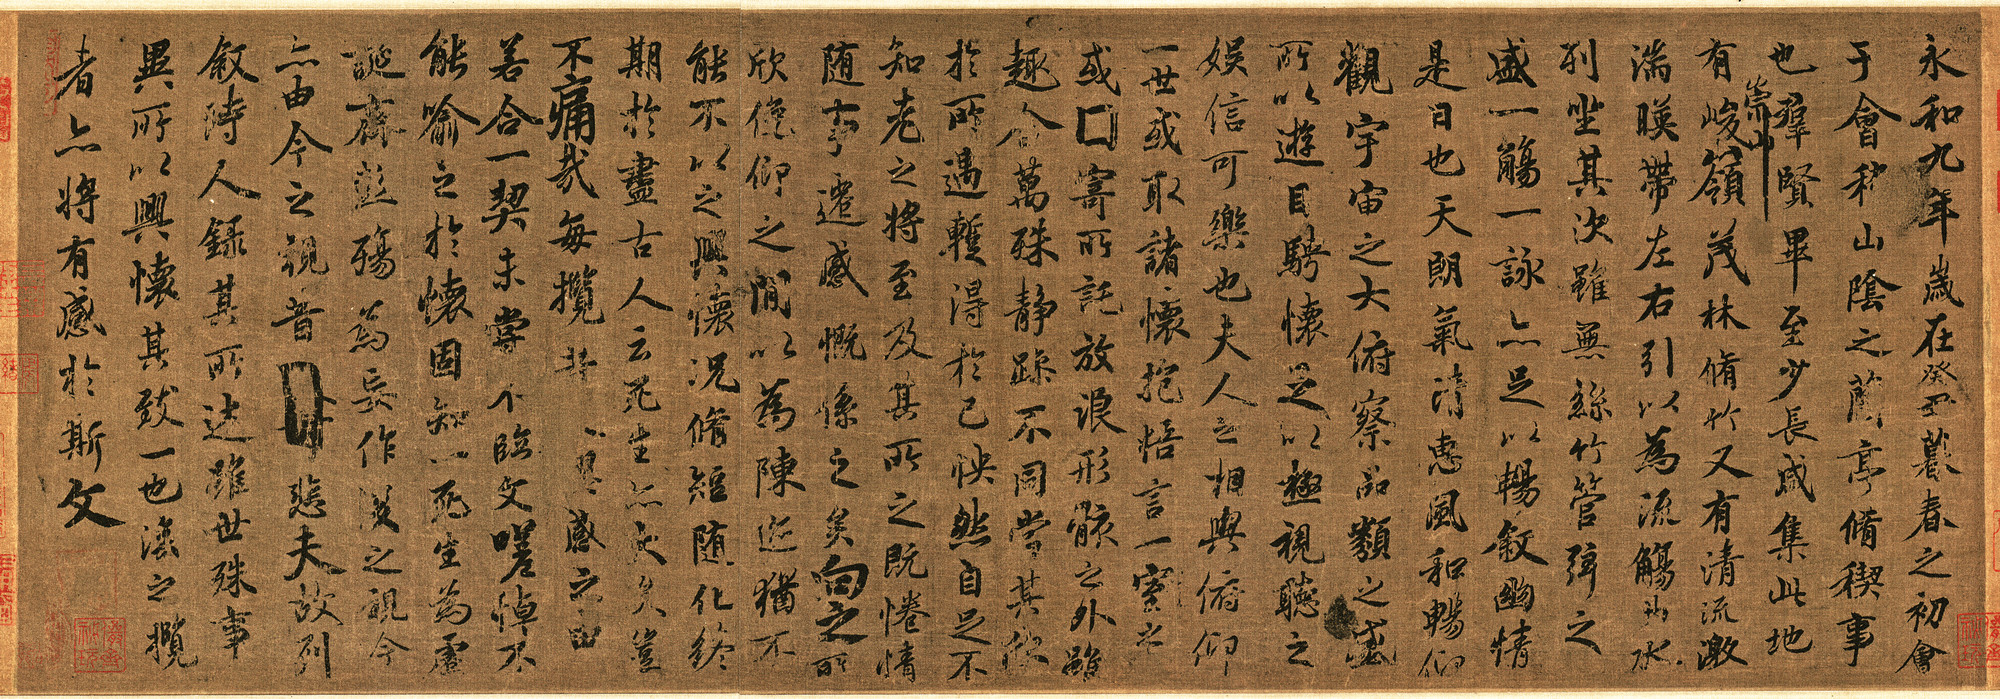 永和九年歲在癸丑暮春之初會
于會稽山陰之蘭亭脩稧事
也羣賢畢至少長咸集此地
有崇山峻領茂林脩竹又有清流激
湍暎帶左右引以為流觴曲水
列坐其次雖無絲竹管弦之
盛一觴一詠亦足以暢敘幽情
是日也天朗氣清惠風和暢仰
觀宇宙之大俯察品類之盛
所以遊目騁懷足以極視聽之
娛信可樂也夫人之相與俯仰
一世或取諸懷抱悟言一室之
或因寄所託放浪形骸之外雖
趣舍萬殊静躁不同當其欣
於所遇暫得於己怏然自足不
知老之將至及其所之既惓情
隨事遷感慨係之矣向之所
欣俛仰之間以為陳迹猶不
能不以之興懷況脩短隨化終
期於盡古人云死生亦大矣豈
不痛哉每攬感之由
若合一契未嘗不臨文嗟悼不
能喻之於懷固知一死生為虛
誕齊彭殤為妄作後之視今
亦由今之視昔悲夫故列
敘時人錄其所述雖世殊事
異所以興懷其致一也後之攬
者亦將有感於斯文